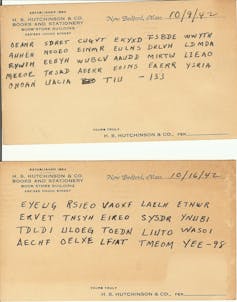 ESTABLISHED 1864
H. S. HUTCHINSON & CO.
BOOKS AND STATIONERY
BOOK STORE BUILDING
New Bedford, Mass. 10/9/42
SDRET CHGVT EKYXD FSBDE WWYTH
NEGEO EINMR EULNS DRLVH LDMDA
EEBYH WUBLV AAUDD MIRTW LIEAO
TRSAD AEEKR EOINS EAERR YSRIA
UALIA TIU - 133
YOURS TRULY
H. S. HUTCHINSON & CO., PER
ESTABLISHED 1864
H. S. HUTCHINSON & CO.
BOOKS AND STATIONERY
BOOK STORE BUILDING
New Bedford, Mass. 10/16/42
EYEUG RSIEO VAOXF LAELH ETNWR
ERVET TNSYH EIREO SYSDR YNUBI
TDLDI ULOEG TOEDN LIUTO WASOI
AECHF OELXE LFIAT TMEOM YEE-98
YOURS TRULY
H. S. HUTCHINSON & CO., PER